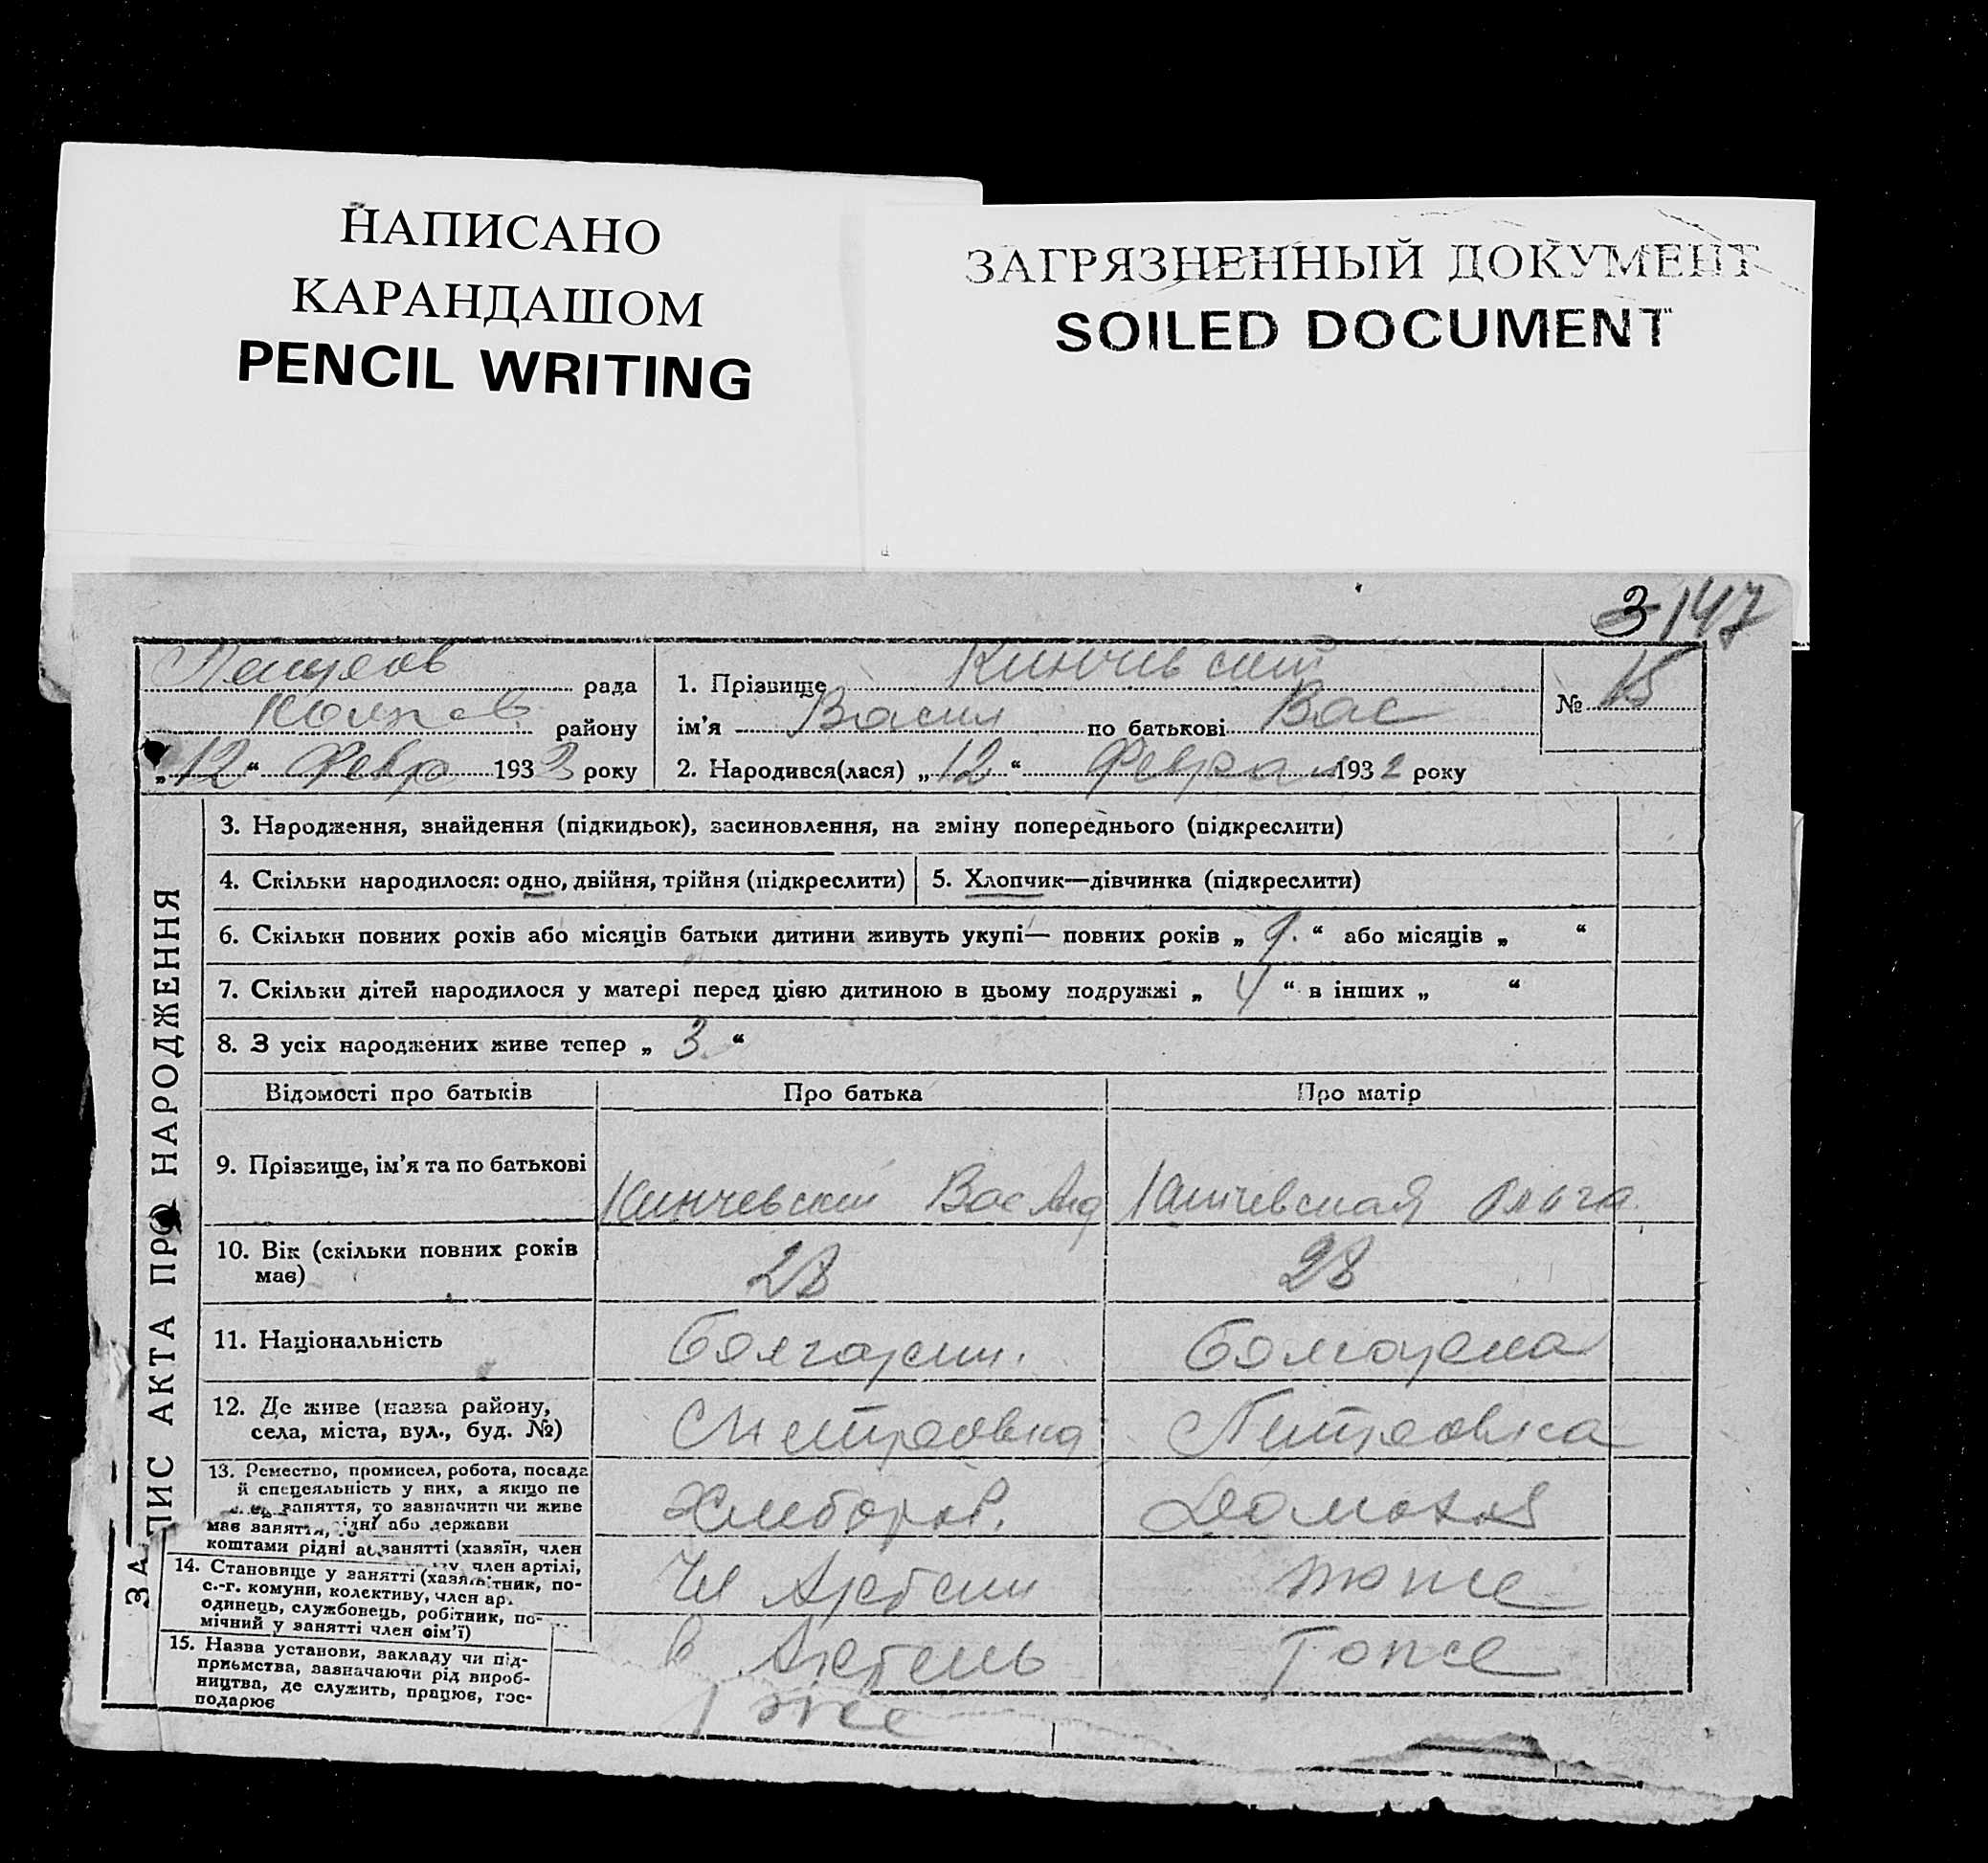 НАПИСАНО
КАРАНДАШОМ
PENCIL WRITING
ЗАГРЯЗНЕННЫЙ ДОКУМЕНТ
SOILED DOCUMENT
3 147
рада
району
„12“ Февр 1933 року
1. Прізвище Кинчевский
ім’я Васил по батькові Вас
2. Народився(лася) „12“ Феврал 1932 року
№ 15
ЗАПИС АКТА ПРО НАРОДЖЕННЯ
3. Народження, знайдення (підкидьок), засиновлення, на зміну попереднього (підкреслити)
4. Скільки народилося: одно, двійня, трійня (підкреслити)
5. Хлопчик—дівчинка (підкреслити)
6. Скільки повних років або місяців батьки дитини живуть укупі— повних років „ 9. “ або місяців „ “
7. Скільки дітей народилося у матері перед цією дитиною в цьому подружжі „ 4 “ в інших „ “
8. З усіх народжених живе тепер „ 3 “
Відомості про батьків
Про батька
Про матір
9. Прізвище, ім’я та по батькові
Кинчевский Вас Анд
Кинчевская Ольга
10. Вік (скільки повних років
має)
28
28
11. Національність
Болгарин.
Болгарка
12. Де живе (назва району,
села, міста, вул., буд. №)
Петровка
13. Ремество, промисел, робота, посада
й спецеяльність у них, а якщо не
заняття, то зазначити чи живе
має заняття, або держави
коштами рідні занятті (хазяїн, член
Хлебороб.
Домохоз
член артілі,
14. Становище у занятті (хазяїн,
с.-г. комуни, колективу, член
одинець, службовець, робітник, по-
мічний у занятті член сім’ї)
Чл Артели
тоже
15. Назва установи, закладу чи під-
приємства, зазначаючи рід вироб-
ництва, де служить, працює, гос-
подарює
В Артель
Тоже
тоже